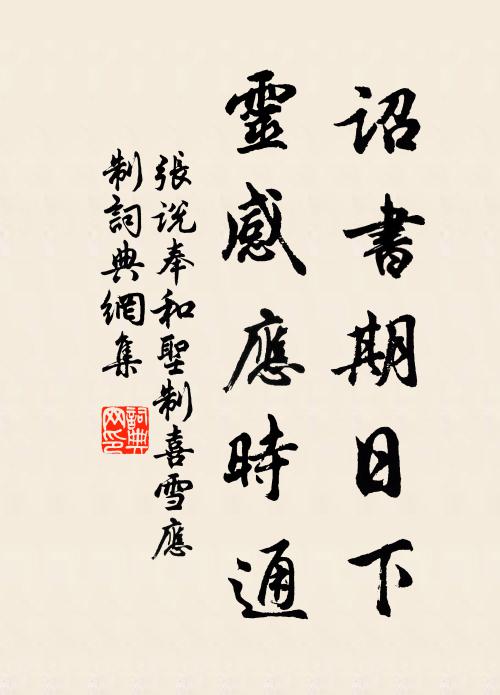 詔書期日下
靈感應時通
張說奉和聖制喜雪應
制詞典網集
詞典網印